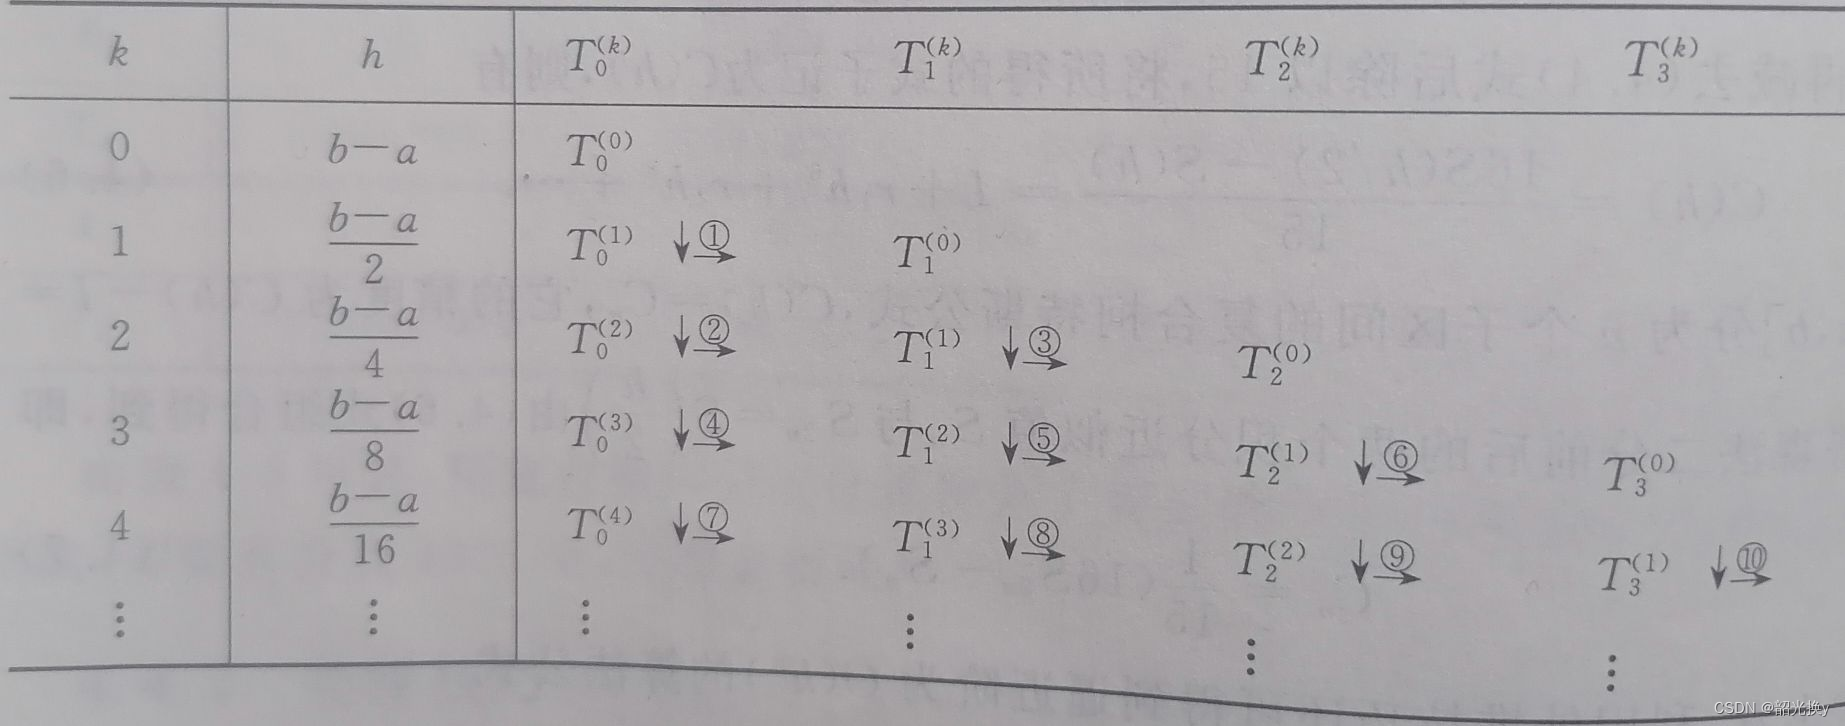 k h T₀⁽ᵏ⁾ T₁⁽ᵏ⁾ T₂⁽ᵏ⁾ T₃⁽ᵏ⁾
0 b−a T₀⁽⁰⁾
1 (b−a)/2 T₀⁽¹⁾ ↓① → T₁⁽⁰⁾
2 (b−a)/4 T₀⁽²⁾ ↓② → T₁⁽¹⁾ ↓③ → T₂⁽⁰⁾
3 (b−a)/8 T₀⁽³⁾ ↓④ → T₁⁽²⁾ ↓⑤ → T₂⁽¹⁾ ↓⑥ → T₃⁽⁰⁾
4 (b−a)/16 T₀⁽⁴⁾ ↓⑦ → T₁⁽³⁾ ↓⑧ → T₂⁽²⁾ ↓⑨ → T₃⁽¹⁾ ↓⑩ →
⋮ ⋮ ⋮ ⋮ ⋮ ⋮
CSDN @韶光换y